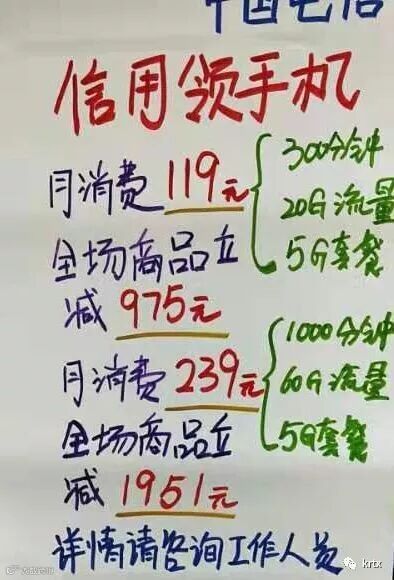 中国电信
信用领手机
月消费 119元
300分钟
20G流量
5G套餐
全场商品立
减 975元
月消费 239元
1000分钟
60G流量
5G套餐
全场商品立
减 1951元
详情请咨询工作人员
krtx